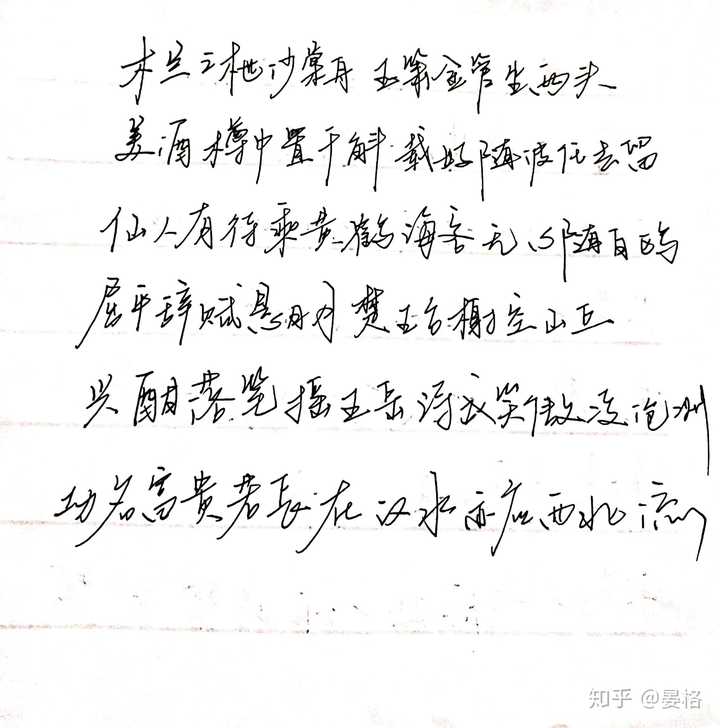 木兰之枻沙棠舟 玉箫金管坐两头
美酒樽中置千斛 载妓随波任去留
仙人有待乘黄鹤 海客无心随白鸥
屈平辞赋悬日月 楚王台榭空山丘
兴酣落笔摇五岳 诗成笑傲凌沧洲
功名富貴若长在 汉水亦应西北流
知乎 @晏格